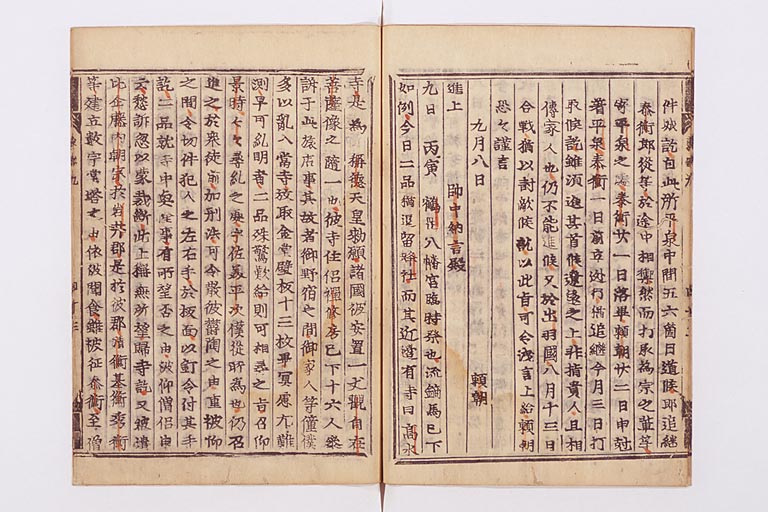 件奴訖自此所平泉中間五六箇日道候即追継
泰衡郎従等於途中相禦然而打取為宗之輩等
寄平泉之處泰衡廿一日落畢頼朝廿二日申刻
着平泉泰衡一日前立逃行猶追継今月三日打
取候訖雖須進其首候遼遠之上非指貴人且相
傳家人也仍不能進候又於出羽國八月十三日
合戰猶以討敵候就以此旨可令洩言上給頼朝
恐々謹言
九月八日 頼朝
進上 帥中納言殿
九日 丙寅 鶴岡八幡宮臨時祭也流鏑馬已下
如例今日二品猶逗留蜂社而其近邊有寺曰高水
寺是為 稱徳天皇勅願諸國被安置一丈觀自在
菩薩像之随一也彼寺住侶禪修房已下十六人參
訴于此旅店事其故者御野宿之間御家人等僮僕
多以乱入當寺放取金堂壁板十三枚畢冥慮尤難
測早可糺明者二品殊驚歎給則可相尋之旨召仰
景時々々尋糺之處宇佐美平次僕從所為也仍召
進之於衆徒前加刑法可令散彼欝陶之由重被仰
之間令切件犯人之左右手於板面以釘令打付其手
訖二品就寺中興隆事有所望否之由被仰僧侶申
云愁訴忽以蒙裁断此上無所望歸寺訖又被遣
比企藤内朝宗於岩井郡是於彼郡清衡基衡秀衡
等建立數宇堂塔之由依被聞食雖被征泰衡至僧